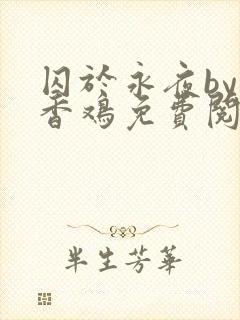 囚於永夜by
香鸡免費閱
半生芳華